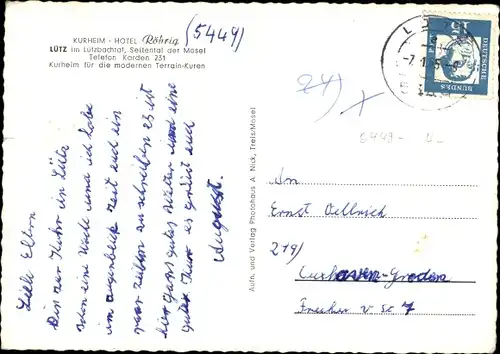 KURHEIM - HOTEL Röhrig
LÜTZ im Lützbachtal, Seitental der Mosel
Telefon Karden 251
Kurheim für die modernen Terrain-Kuren
(5449)
Liebe Eltern
Bin zur Kuhr in Lütz
schon eine Woche und ich habe
im augenblick Zeit und ein
paar zeilen zu schreiben Es ist
hier ganz gutes Wetter und eine
gute Kur es grüßt euch
August.
Aufn. und Verlag Photohaus A. Nick, Treis/Mosel
15
DEUTSCHE
BUNDES
24)
5449-
An
Ernst Oellrich
219)
Cuxhaven-Groden